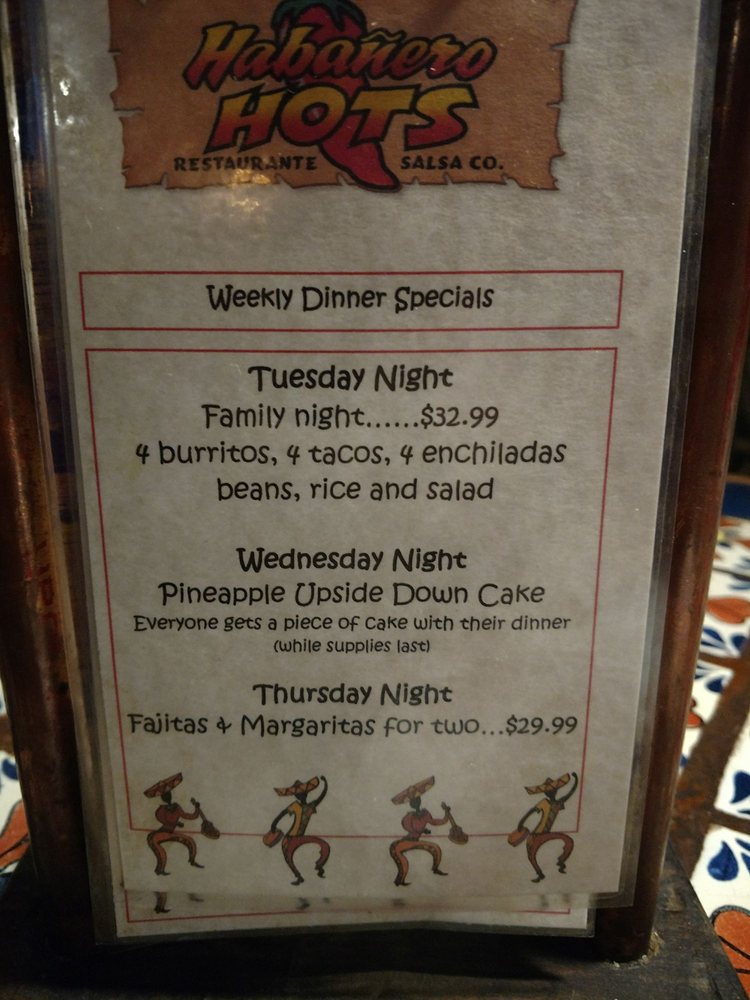 Habañero
HOTS
RESTAURANTE SALSA CO.
Weekly Dinner Specials
Tuesday Night
Family night......$32.99
4 burritos, 4 tacos, 4 enchiladas
beans, rice and salad
Wednesday Night
Pineapple Upside Down Cake
Everyone gets a piece of cake with their dinner
(while supplies last)
Thursday Night
Fajitas & Margaritas for two...$29.99